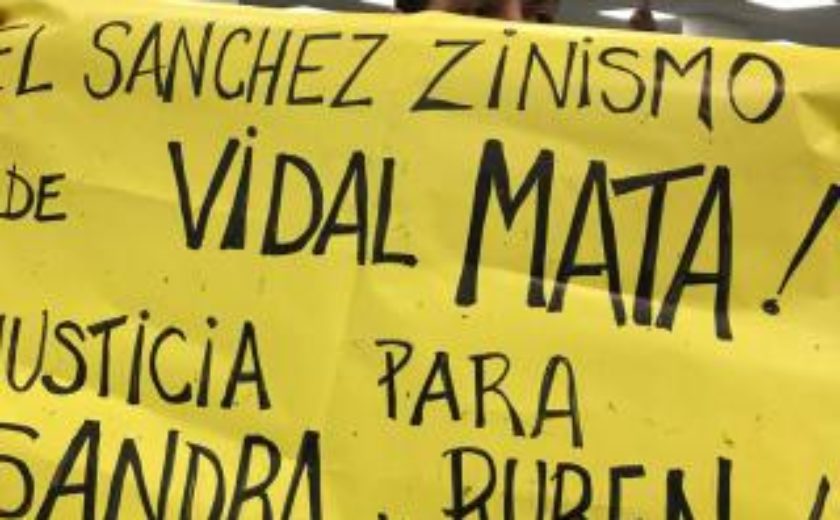 EL SANCHEZ ZiNiSMO
DE ViDAL MATA!
JUSTiCiA PARA
SANDRA . RUBEN !